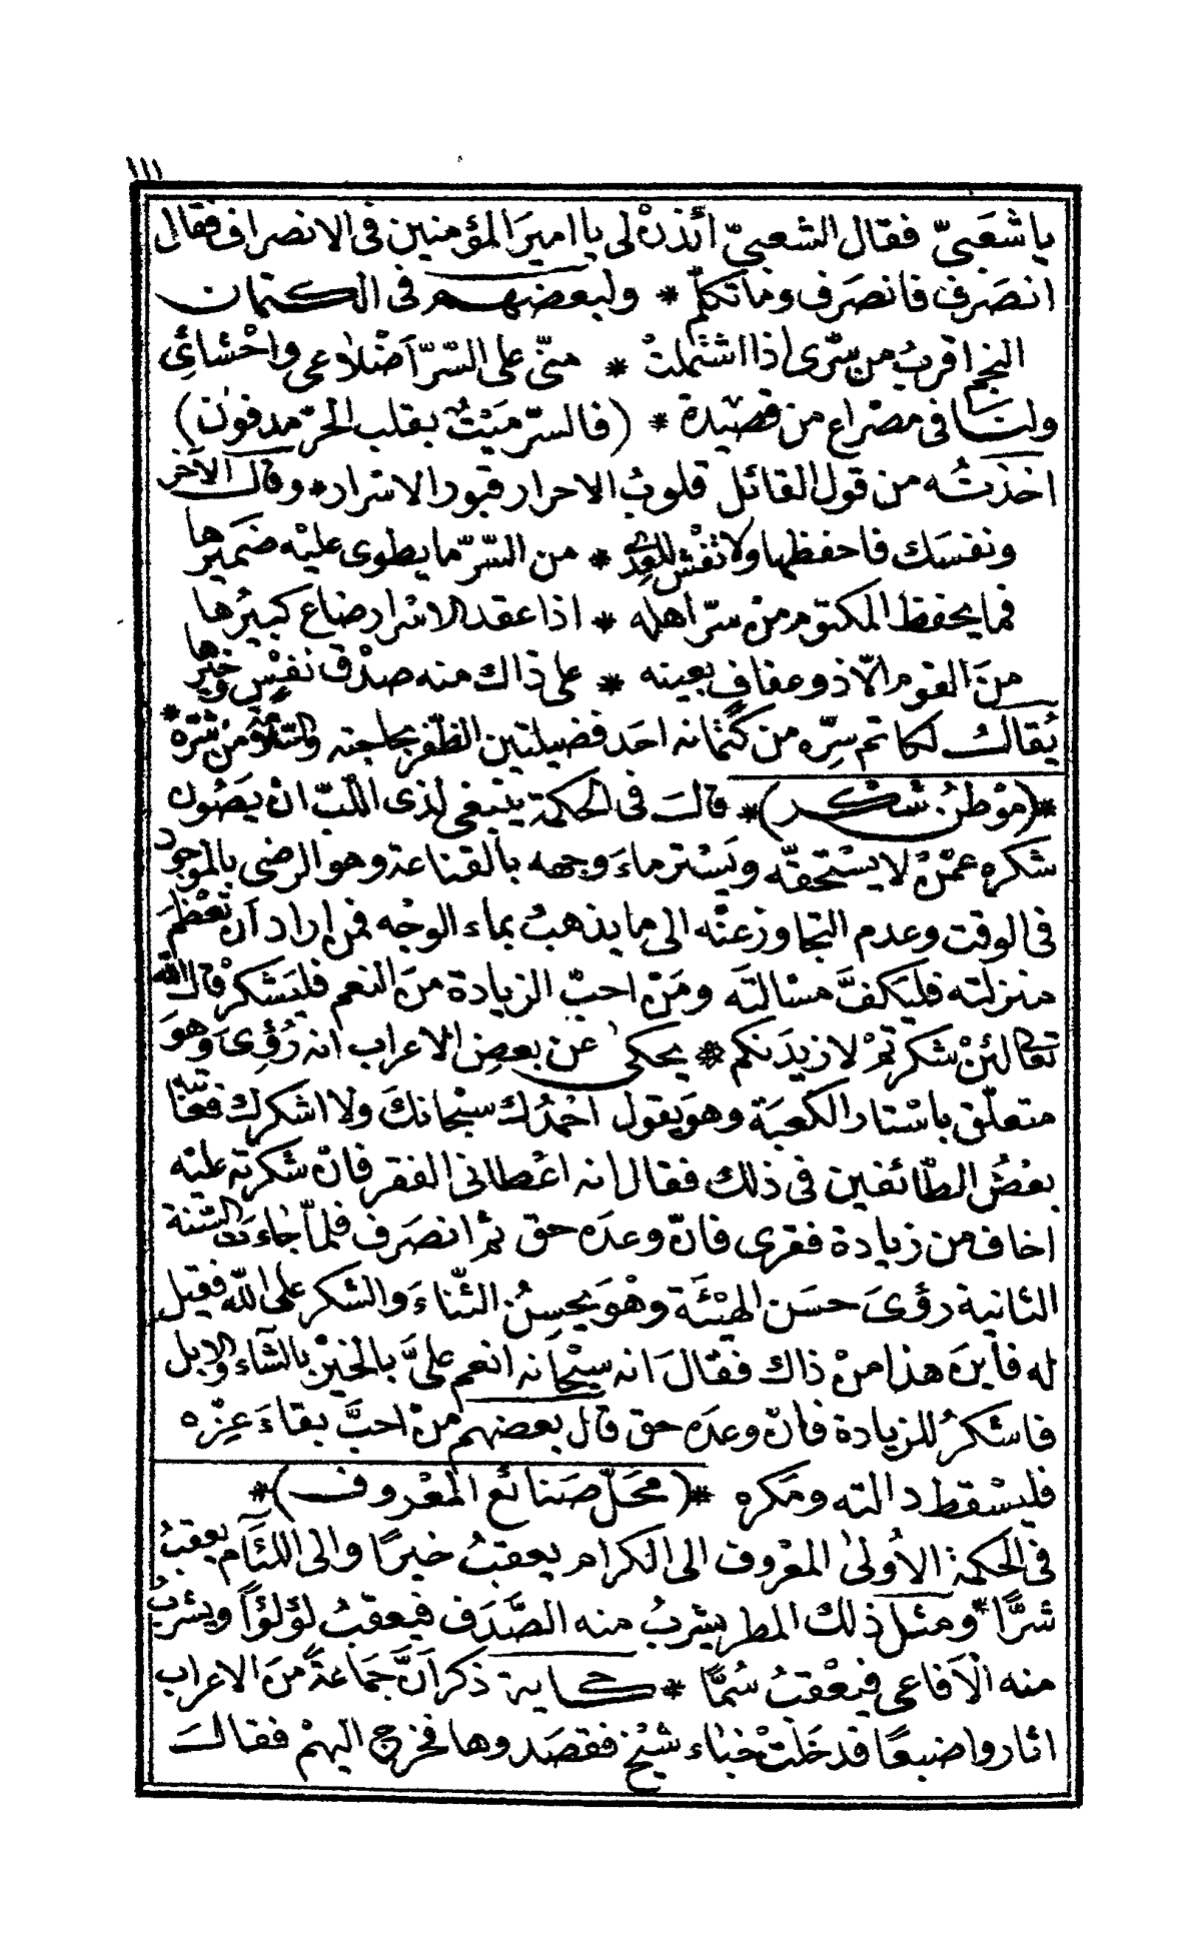 ١١١
يا شَعَبيّ فقال الشعبيّ أئذنْ لى يا اميرَ المؤمنين فى الانصراف فقال
انصَرِف فانصَرَف وما تكلّم * ولبعضهم فى الكتمان
النجم اقربُ من سِرّى اذا اشتملتْ * منّى على السّرّ اَضْلاعى واحْشائى
ولنا فى مصْراع من قصيدة * (فالسرّ مَيْتٌ بقلب الحرّ مدفون)
اخذتُه من قول القائل قلوبُ الاحرار قبور الاسرار * وقال الآخر
ونفسَك فاحفظها ولا تفْشِ للعِدى * من السّرّ ما يطوى عليْه ضميرها
فما يحفظ المكتوم منْ سرّ اهله * اذا عقد الاسْرار ضاع كبيرُها
منَ القوم الّا ذو عفافٍ يعينه * على ذاك منه صدْق نفْسٍ وخيرها
يُقال لكاتم سِرّه من كتمانه احَد فضيلتين الظّفر بحاجته والسّلامة منْ شرّه *
*(موْطن شكر)* قال فى الحكمة ينبغى لذى اللّبّ انْ يَصُون
شكره عمّنْ لا يسْتحقّه ويَسْتر ماءَ وجهه بالقناعة وهو الرضى بالموجود
فى الوقت وعدم التجاوز عنْه الى ما يذهبُ بماء الوجْه فمن اراد اَن تعْظمَ
منزلته فليَكفَّ مسْالتَه ومَنْ احبّ الزيادة منَ النعم فليَشكرْ قال الله
تعالى لئنْ شكرتمْ لازيدَنكم * يحكى عن بعض الاعراب انه رُؤىَ وهوَ
متعلّق باسْتار الكعبَة وهوَ يقول احْمدُك سبْحانكَ ولا اشكرك فعَاتبَه
بعْضُ الطّائفين فى ذلك فقال انه اعْطانى الفقر فانْ شكرته عليْه
اخاف من زيادة فقرى فانّ وعدَه حق ثمّ انصَرف فلمّا جاءَت السّنة
الثانية رؤىَ حسَن الهيْئَة وهْوَ يحسِنُ الثّناءَ والشكر على اللّه فقيل
له فأينَ هذا منْ ذاك فقالَ انه سبْحانه انعم علىَّ بالخيْر بالشاء والابل
فاشكرُ للزيادة فانّ وعدَه حق قال بعضهم منْ احبَّ بقاءَ عِزّه
فليسْقط دالته ومَكره *(محَلّ صَنائع المعْروف)*
فى الحكمة الاُولىٰ المعْروف الى الكرام يعقبُ خيرًا والى اللئآم يعقبُ
شرًّا * ومثل ذلك المطر يشربُ منه الصَّدَف فيعقبُ لؤلؤاً ويشربُ
منه الْافاعى فيعْقبُ سُمًّا * حكاية ذكر اَنَّ جَماعَةً منَ الاعراب
اثاروا ضبعًا فدخَلتْ خباء شيْخ فقصَدوها فخرج اليهمْ فقالَ